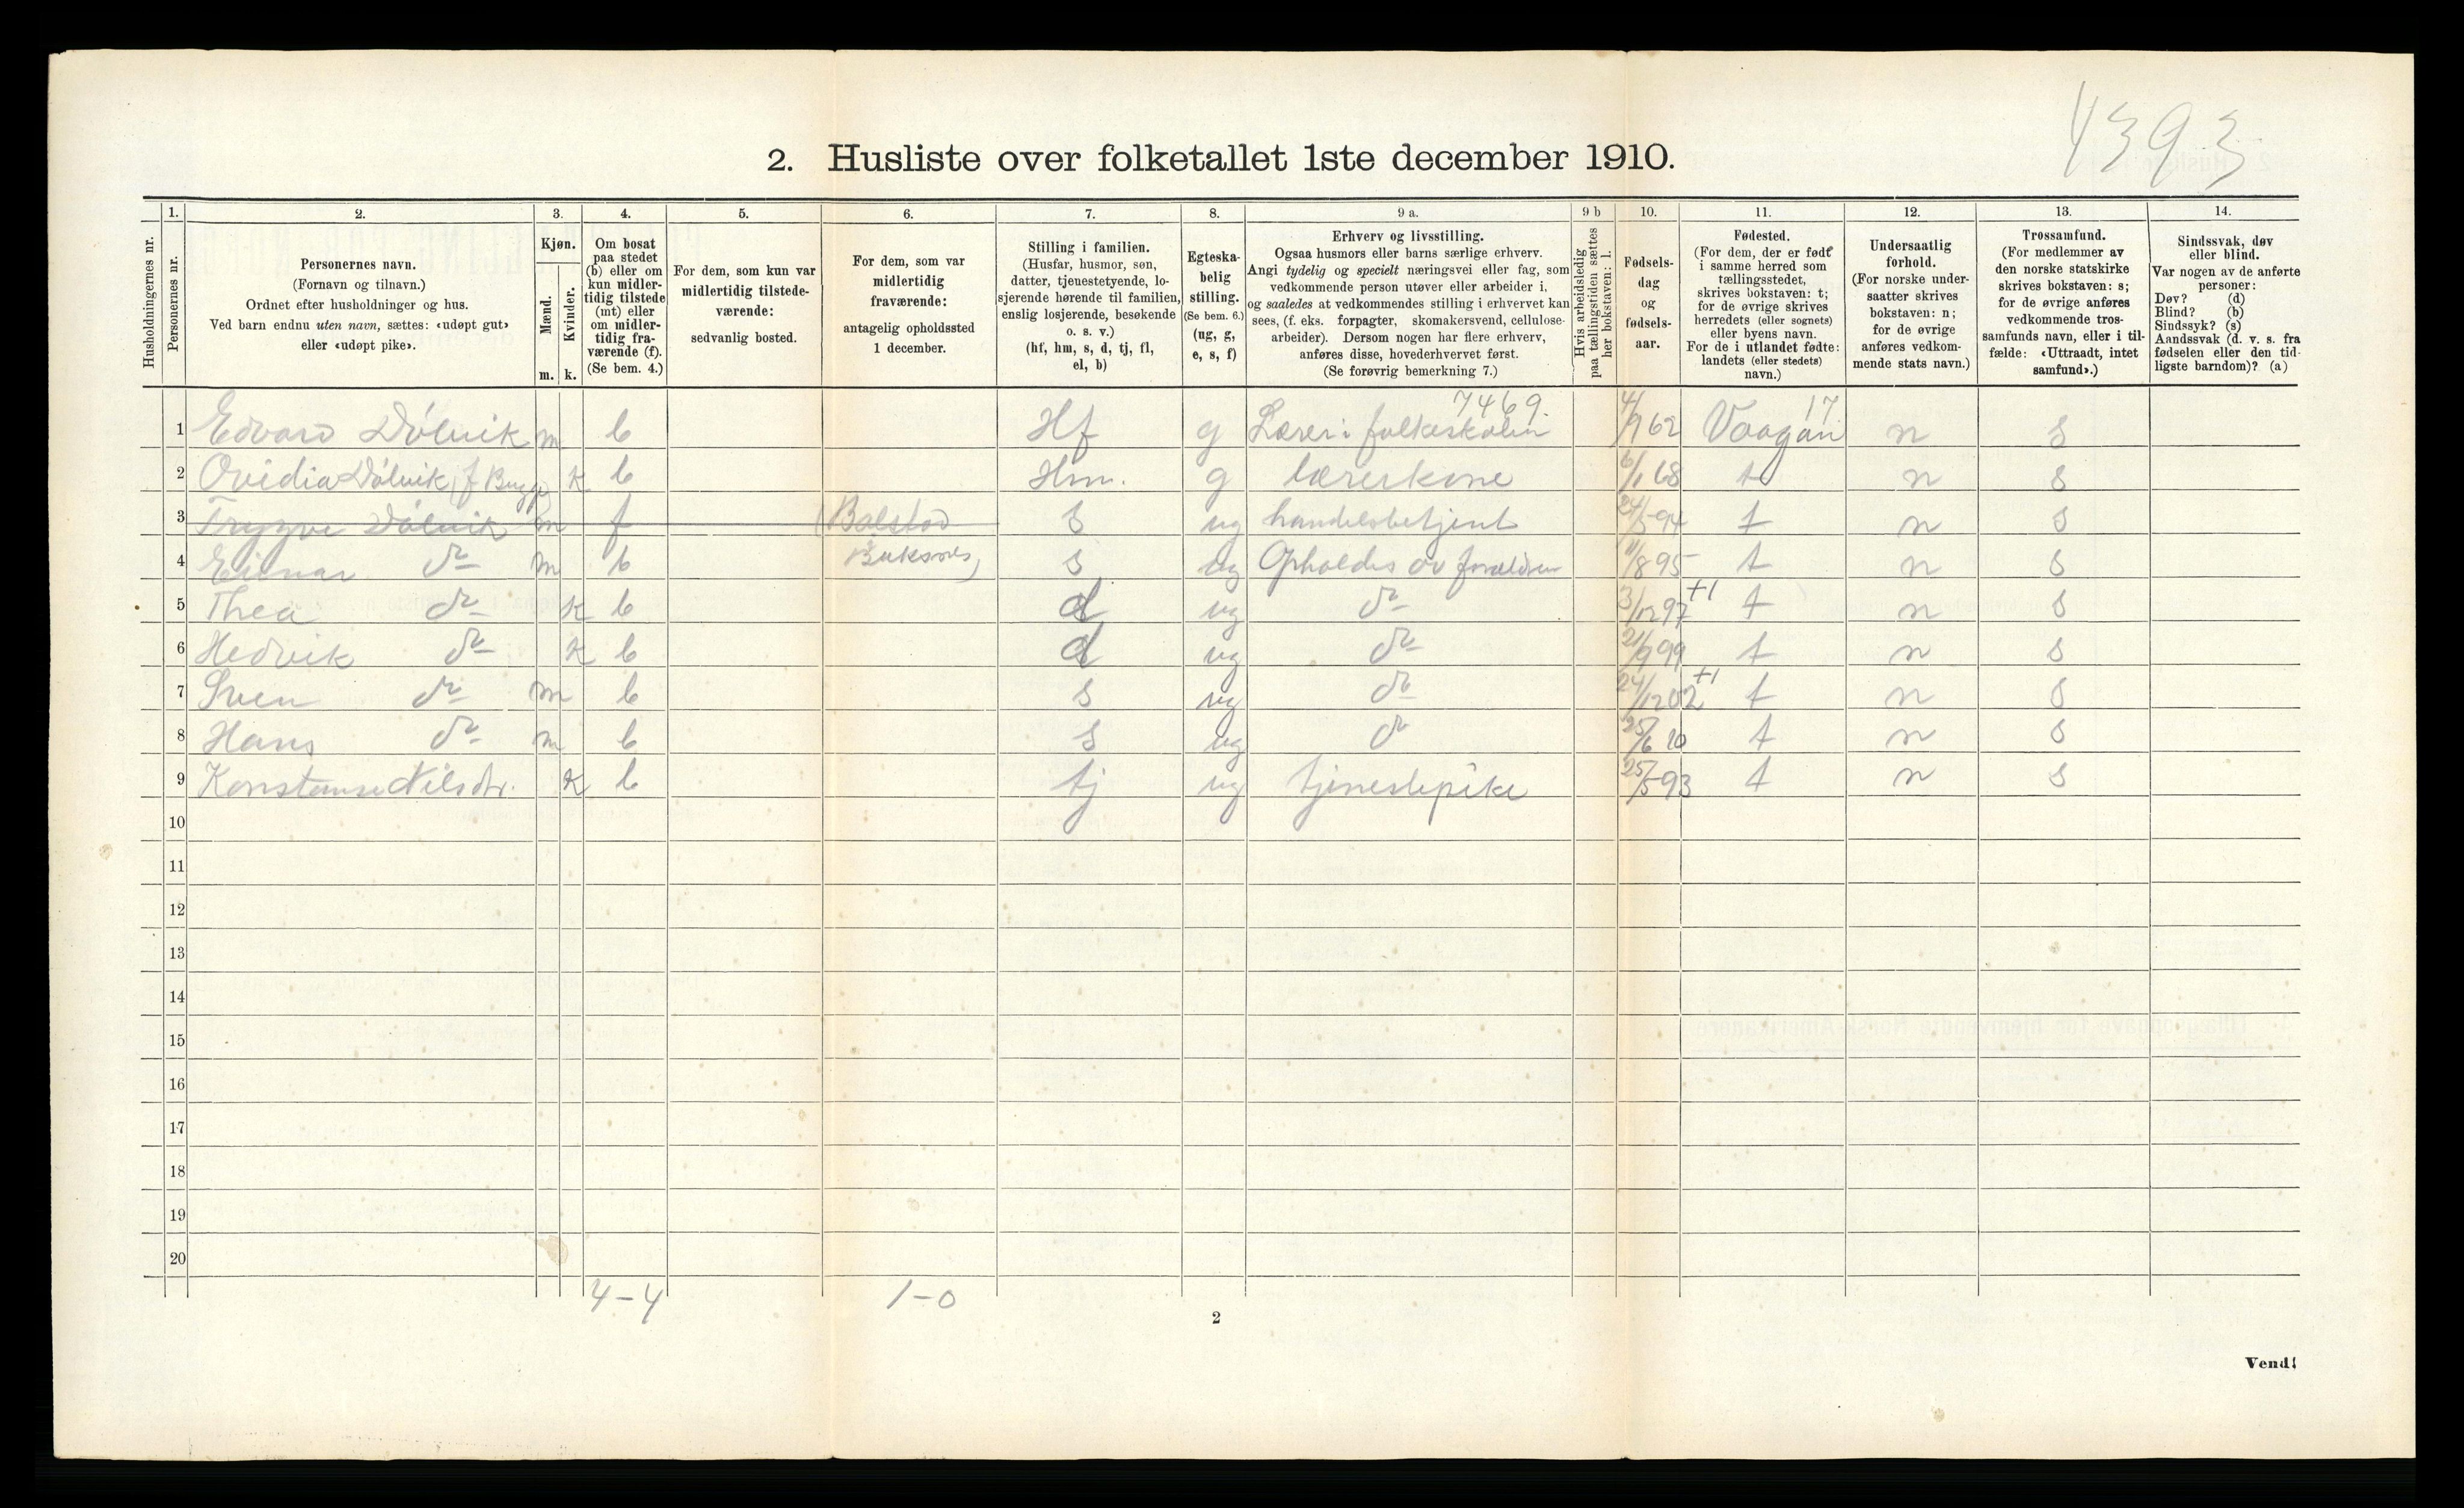 4393
2. Husliste over folketallet 1ste december 1910.
Husholdningernes nr.
1.
Personernes nr.
2.
Personernes navn.
(Fornavn og tilnavn.)
Ordnet efter husholdninger og hus.
Ved barn endnu uten navn, sættes: «udøpt gut»
eller «udøpt pike».
3.
Kjøn.
Mænd.
Kvinder.
m. k.
4.
Om bosat
paa stedet
(b) eller om
kun midler-
tidig tilstede
(mt) eller
om midler-
tidig fra-
værende (f).
(Se bem. 4.)
5.
For dem, som kun var
midlertidig tilstede-
værende:
sedvanlig bosted.
6.
For dem, som var
midlertidig
fraværende:
antagelig opholdssted
1 december.
7.
Stilling i familien.
(Husfar, husmor, søn,
datter, tjenestetyende, lo-
sjerende hørende til familien,
enslig losjerende, besøkende
o. s. v.)
(hf, hm, s, d, tj, fl,
el, b)
8.
Egteska-
belig
stilling.
(Se bem. 6.)
(ug, g,
e, s, f)
9 a.
Erhverv og livsstilling.
Ogsaa husmors eller barns særlige erhverv.
Angi tydelig og specielt næringsvei eller fag, som
vedkommende person utøver eller arbeider i,
og saaledes at vedkommendes stilling i erhvervet kan
sees, (f. eks. forpagter, skomakersvend, cellulose-
arbeider). Dersom nogen har flere erhverv,
anføres disse, hovederhvervet først.
(Se forøvrig bemerkning 7.)
9 b
Hvis arbeidsledig
paa tællingstiden sættes
her bokstaven: l.
10.
Fødsels-
dag
og
fødsels-
aar.
11.
Fødested.
(For dem, der er født
i samme herred som
tællingsstedet,
skrives bokstaven: t;
for de øvrige skrives
herredets (eller sognets)
eller byens navn.
For de i utlandet fødte:
landets (eller stedets)
navn.)
12.
Undersaatlig
forhold.
(For norske under-
saatter skrives
bokstaven: n;
for de øvrige
anføres vedkom-
mende stats navn.)
13.
Trossamfund.
(For medlemmer av
den norske statskirke
skrives bokstaven: s;
for de øvrige anføres
vedkommende tros-
samfunds navn, eller i til-
fælde: «Uttraadt, intet
samfund».)
14.
Sindssvak, døv
eller blind.
Var nogen av de anførte
personer:
Døv? (d)
Blind? (b)
Sindssyk? (s)
Aandssvak (d. v. s. fra
fødselen eller den tid-
ligste barndom)? (a)
7469. 17
1 Edvard Dølvik m b Hf g Lærer i folkeskolen 4/9 62 Vaagan n s
2 Ovidia Dølvik f k b Hm. g lærerkone 6/1 68 t n s
3 Trygve Dølvik m f (Balstad s ug handelsbetjent 24/5 94 t n s
4 Einar do m b Buksnes) s ug Opholdes av forældrene 11/8 95 t n s
5 Thea do k b d ug do 3/12 97 +1 t n s
6 Hedvik do k b d ug do 21/9 99 t n s
7 Sven do m b s ug do 24/12 02 +1 t n s
8 Hans do m b s ug do 25/6 10 t n s
9 Konstanse Nilsdtr. k b tj ug tjenestepike 25/5 93 t n s
10
11
12
13
14
15
16
17
18
19
20
4-4 1-0
2
Vend!